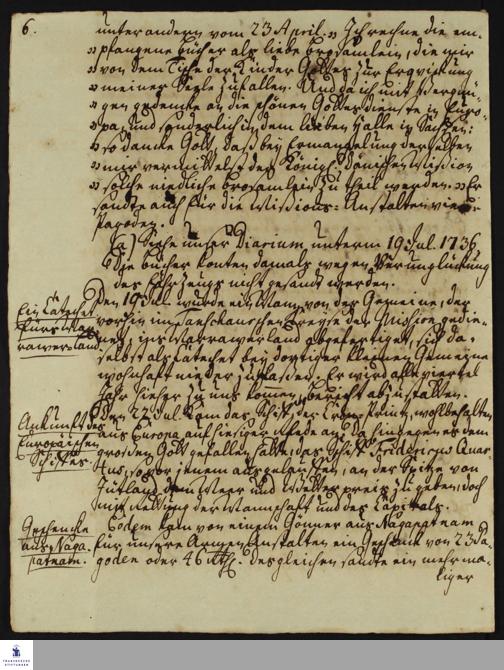 6.
unter andern vom 23 April: „Ich rechne die em-
„pfangene bücher als liebe brosämlein, die mir
„von dem Tische der Kinder Gottes zur Erqvickung
„meiner Seele zufallen. Und da ich mit Vergnü-
„gen gedencke an die schönen Gottesdienste in Euro-
„pa, und sonderlich in dem lieben Halle in Sachsen:
„so dancke Gott, daß bey Ermangelung derselben
„mir vermittelst der Königl. Dänischen Mission
„solche niedliche brosämlein zu theil werden. „Er
sandte auch für die Missions-Anstalten vier
Pagoden.
(a) Siehe unser Diarium unterm 19 Jul. 1736
Die bücher konten damals wegen Verunglückung
des Fahrzeugs nicht gesandt werden.
Ein Catechet
fürs Mar-
rawer-land
Den 19 Jul. wurde ein Mann von der Gemeine, der
vorhin im Tanschaurischen Creyse der Mission gedie-
net, ins Marrawerland abgefertiget, sich da-
selbst als Catechet bey dortiger kleinen Gemeine
wohnhaft nieder zu laßen. Er wird alle viertel
Jahr hieher zu uns kommen, bericht abzustatten.
Ankunft des
Europäischen
Schiffes.
Den 22 Jul. kam das Schif, der Cron-Printz, wohlbehalten
aus Europa auf hiesiger Rhede an; da hingegen es dem
großen Gott gefallen hatte, das Schif Fridericus Quar-
tus, so vor jenem ausgelauffen, an der Spitze von
Jütland dem Meer und Wetter preis zu geben, doch
mit Rettung der Mannschaft und des Capitals.
Geschencke
aus Naga-
patnam.
Eodem kam von einem Gönner aus Nagapatnam
für unsere Armen Anstalten ein Geschenck von 23 Pa-
goden oder 46 Rthl. desgleichen sandte ein mehrma-
liger
FRANCKESCHE
STIFTUNGEN